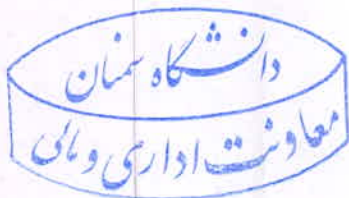 دانشگاه سمنان
معاونت اداری و مالی